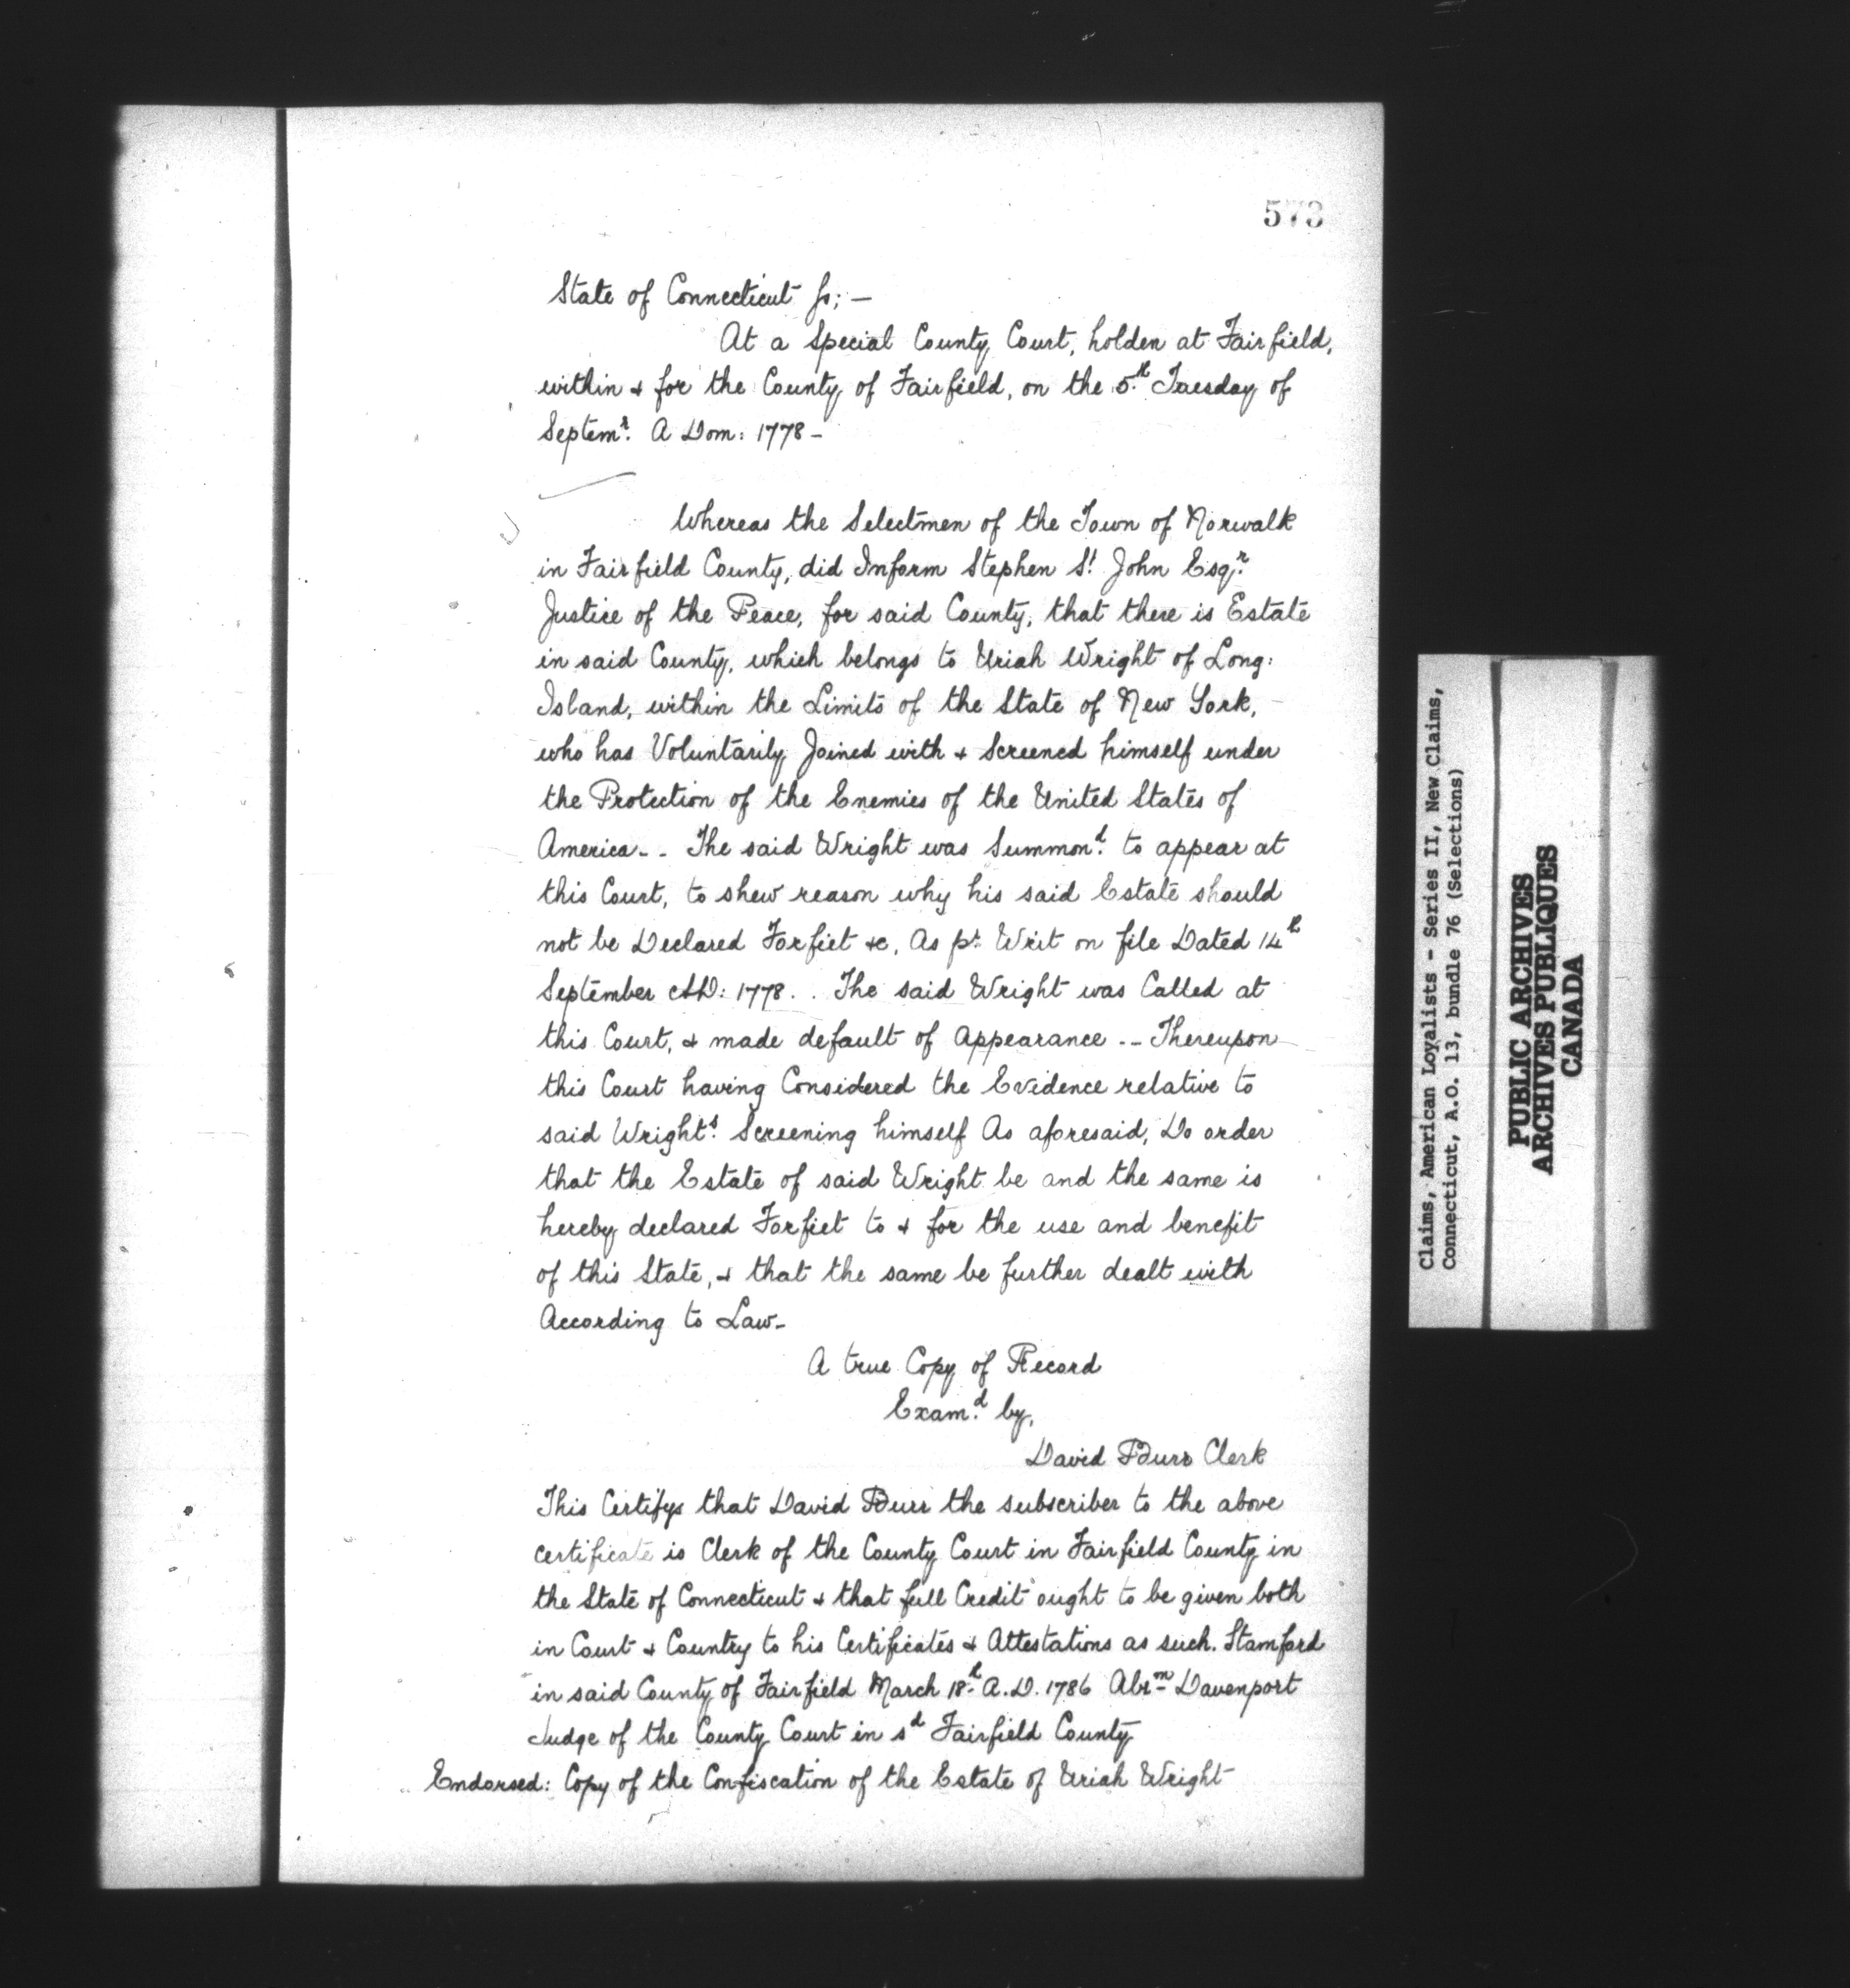 573
State of Connecticut Ss; —
At a Special County Court, holden at Fairfield,
within & for the County of Fairfield, on the 5.th Tuesday of
Septemr. A Dom: 1778 -
Whereas the Selectmen of the Town of Norwalk
in Fairfield County, did Inform Stephen St. John Esqr.
Justice of the Peace, for said County, that there is Estate
in said County, which belongs to Uriah Wright of Long:
Island, within the Limits of the State of New York,
who has Voluntarily Joined with & Screened himself under
the Protection of the Enemies of the United States of
America - - The said Wright was Summond. to appear at
this Court, to shew reason why his said Estate should
not be Declared Forfiet &c, As pr. Writ on file Dated 14th
September AD: 1778. . The said Wright was Called at
this Court, & made default of Appearance - - Thereupon
this Court having Considered the Evidence relative to
said Wrights. Screening himself As aforesaid, Do order
that the Estate of said Wright be and the same is
hereby declared Forfiet to & for the use and benefit
of this State, & that the same be further dealt with
According to Law -
A true Copy of Record
Examd. by,
David Burr Clerk
This Certifys that David Burr the subscriber to the above
certificate is Clerk of the County Court in Fairfield County in
the State of Connecticut & that full Credit ought to be given both
in Court & Country to his Certificates & Attestations as such. Stamford
in said County of Fairfield March 18th. A.D. 1786 Abrm Davenport
Judge of the County Court in sd Fairfield County
Endorsed: Copy of the Confiscation of the Estate of Uriah Wright
Claims, American Loyalists - Series II, New Claims,
Connecticut, A.O. 13, bundle 76 (Selections)
PUBLIC ARCHIVES
ARCHIVES PUBLIQUES
CANADA